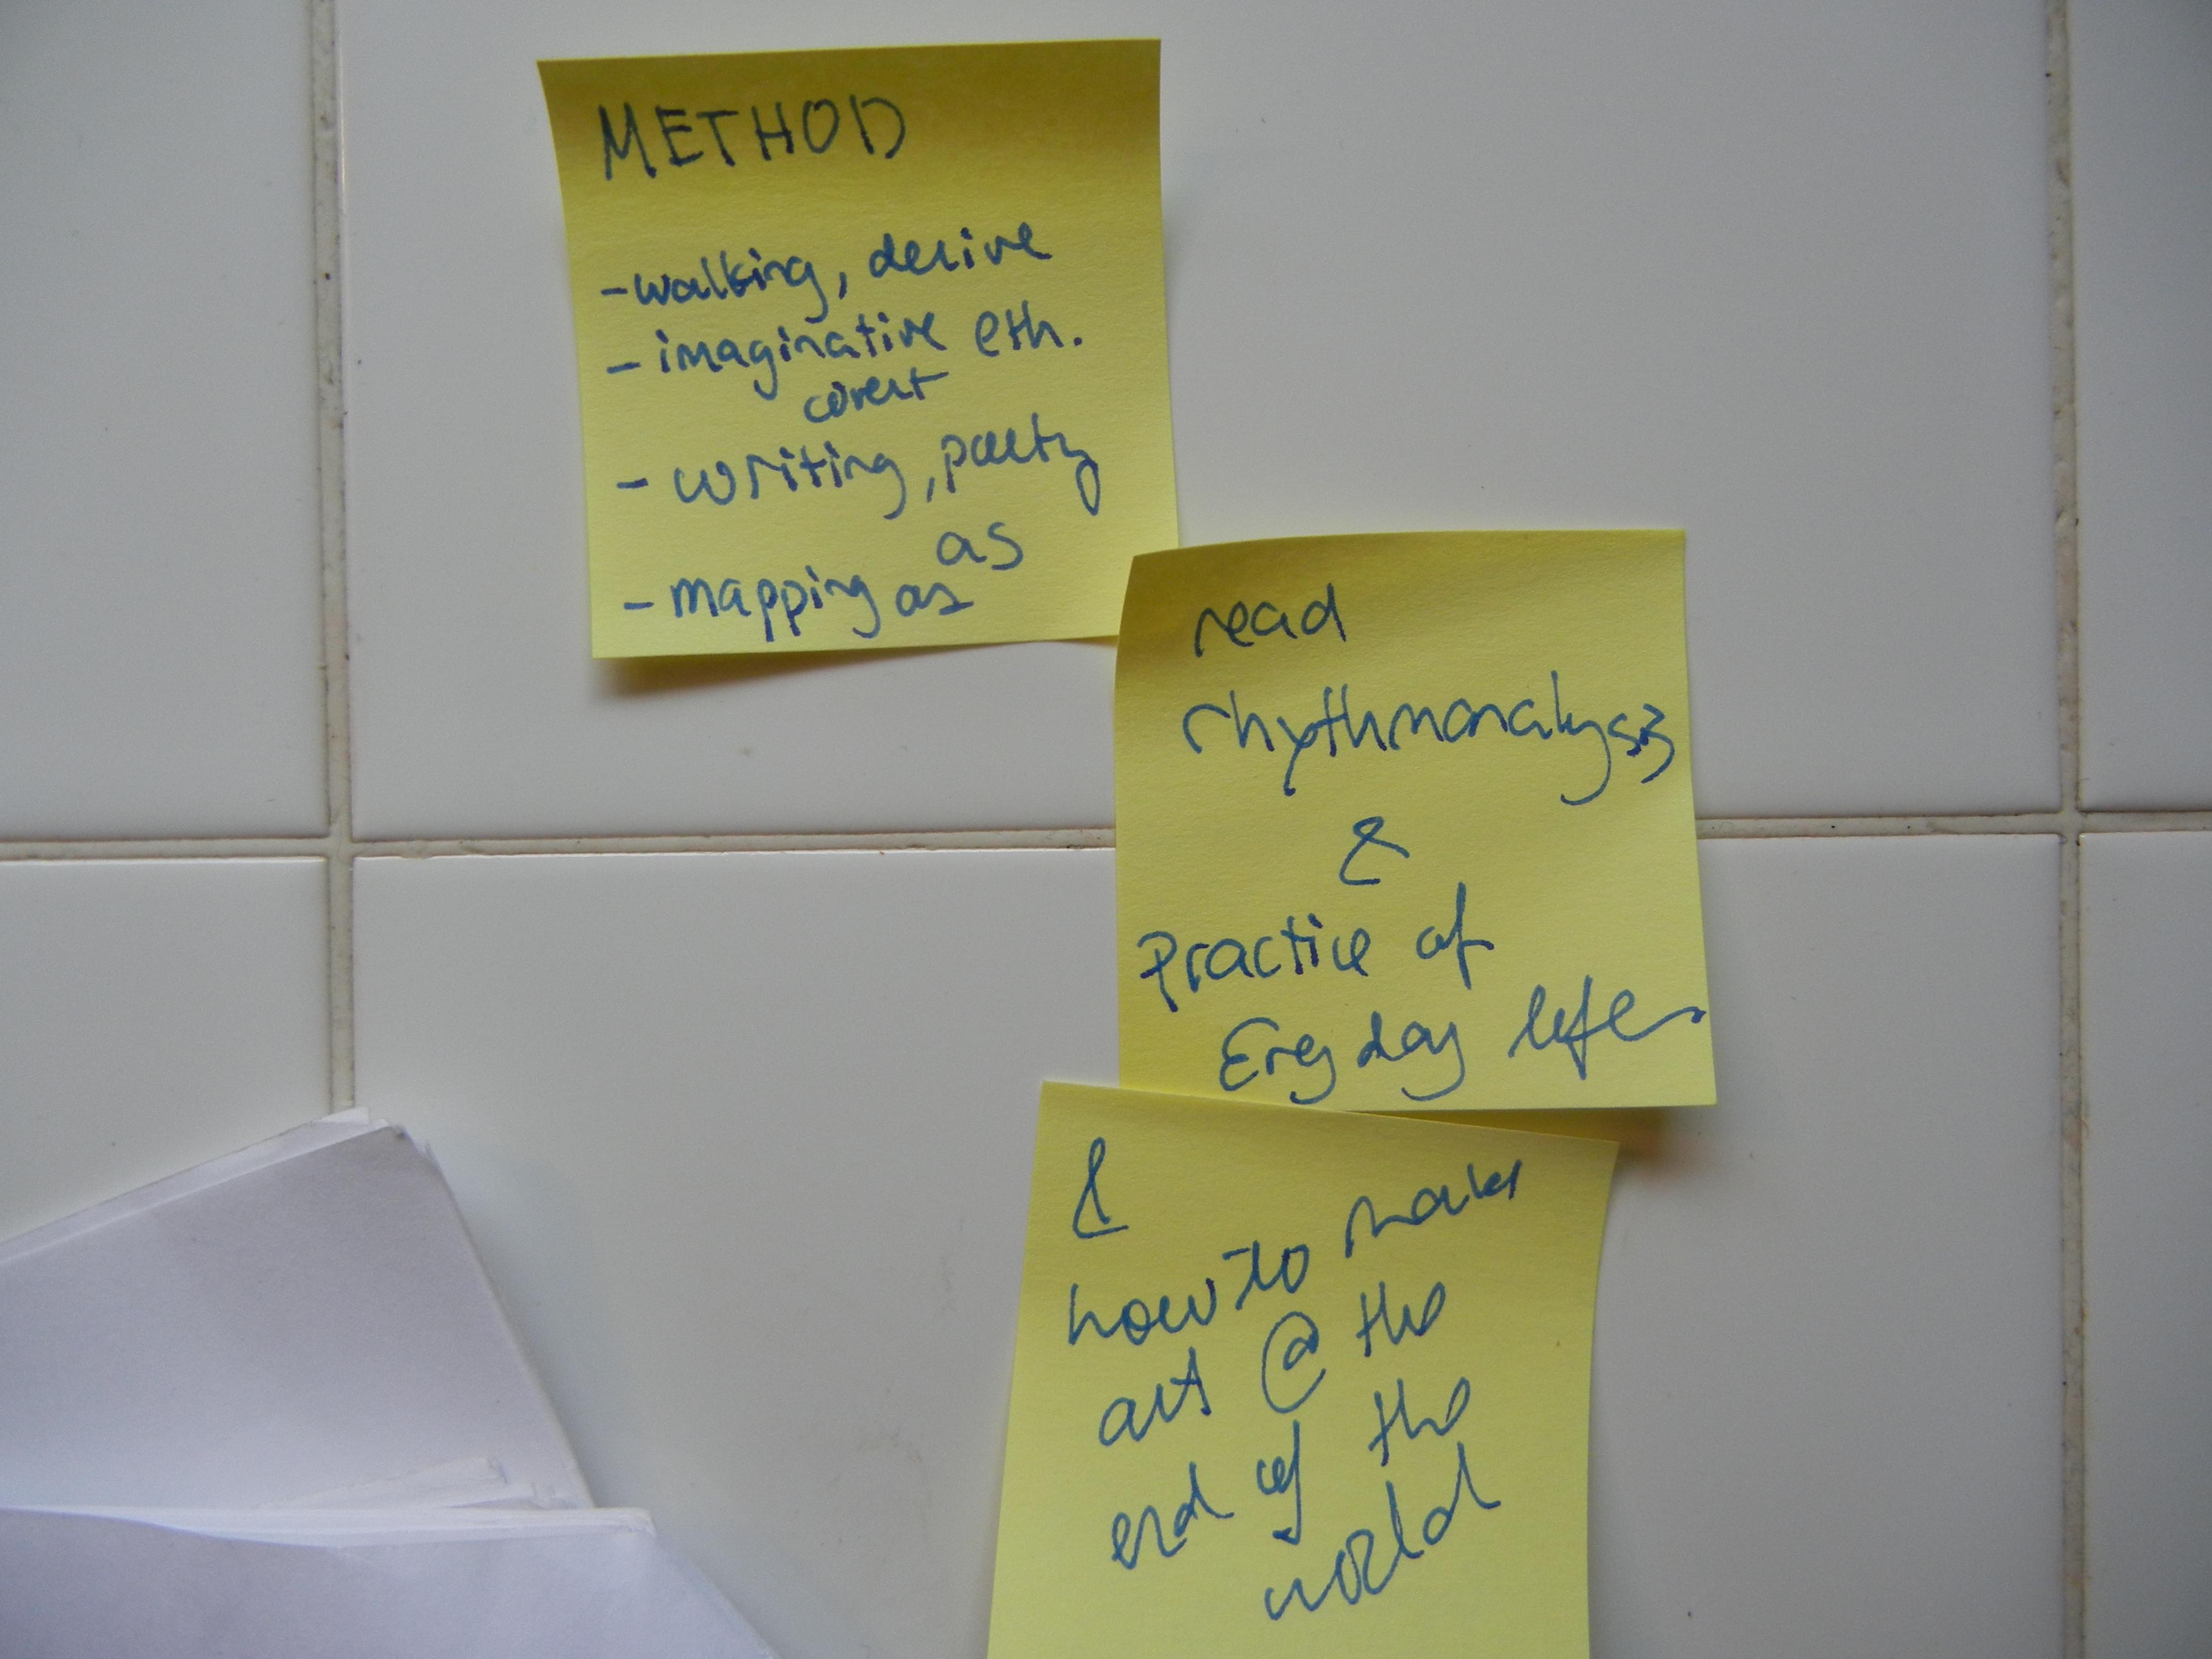 METHOD
- walking, derive
- imaginative eth.
covert
- writing, poetry
as
- mapping as
read
rhythmanalysis
&
Practice of
Ery day life
&
how to make
art @ the
end of the
world